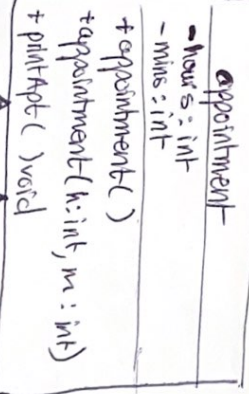 appointment
- hours: int
- mins: int
+ appointment()
+ appointment(h: int, m: int)
+ printApt( )void